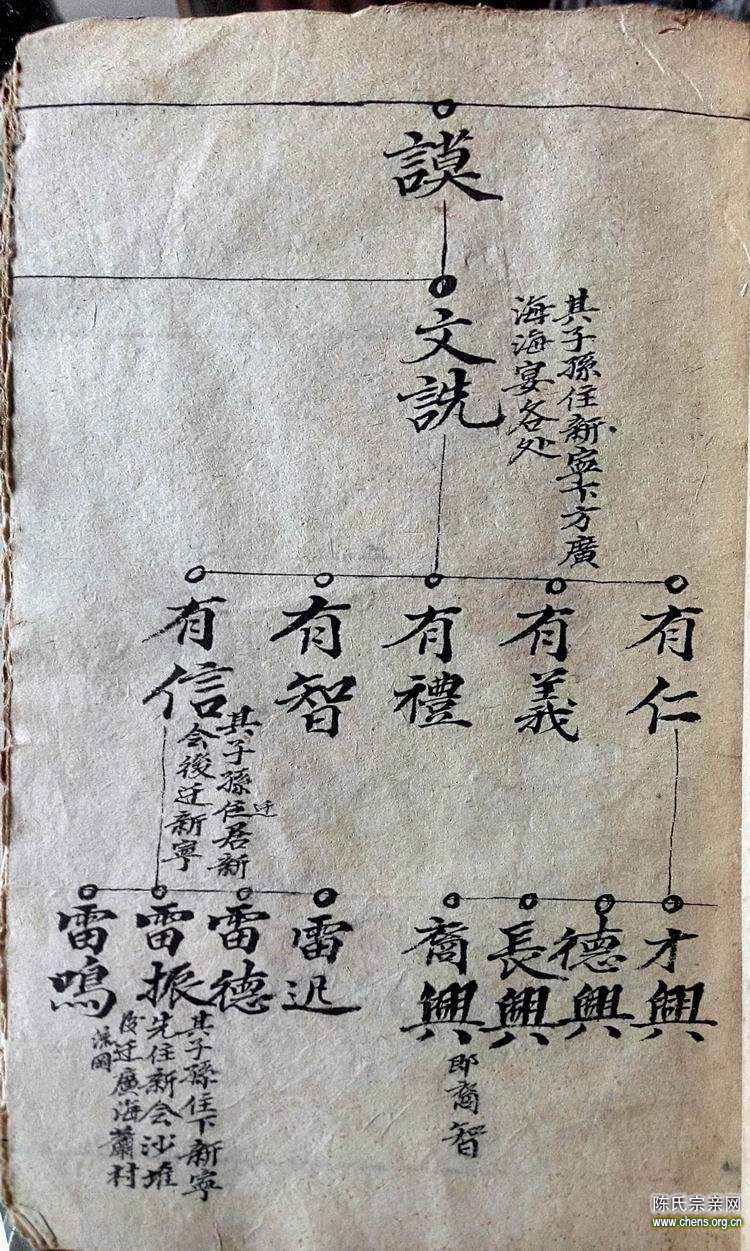 謨
文詵
其子孫住新寧下方廣
海海宴各处
有仁
有義
有禮
有智
有信
其子孫住居新
迁
会後迁新寧
才興
德興
長興
裔興
即裔智
雷迅
雷德
雷振
雷鳴
其子孫住下新寧
先住新会沙堆
迁廣海蕭村
陈氏宗亲网
www.chens.org.cn